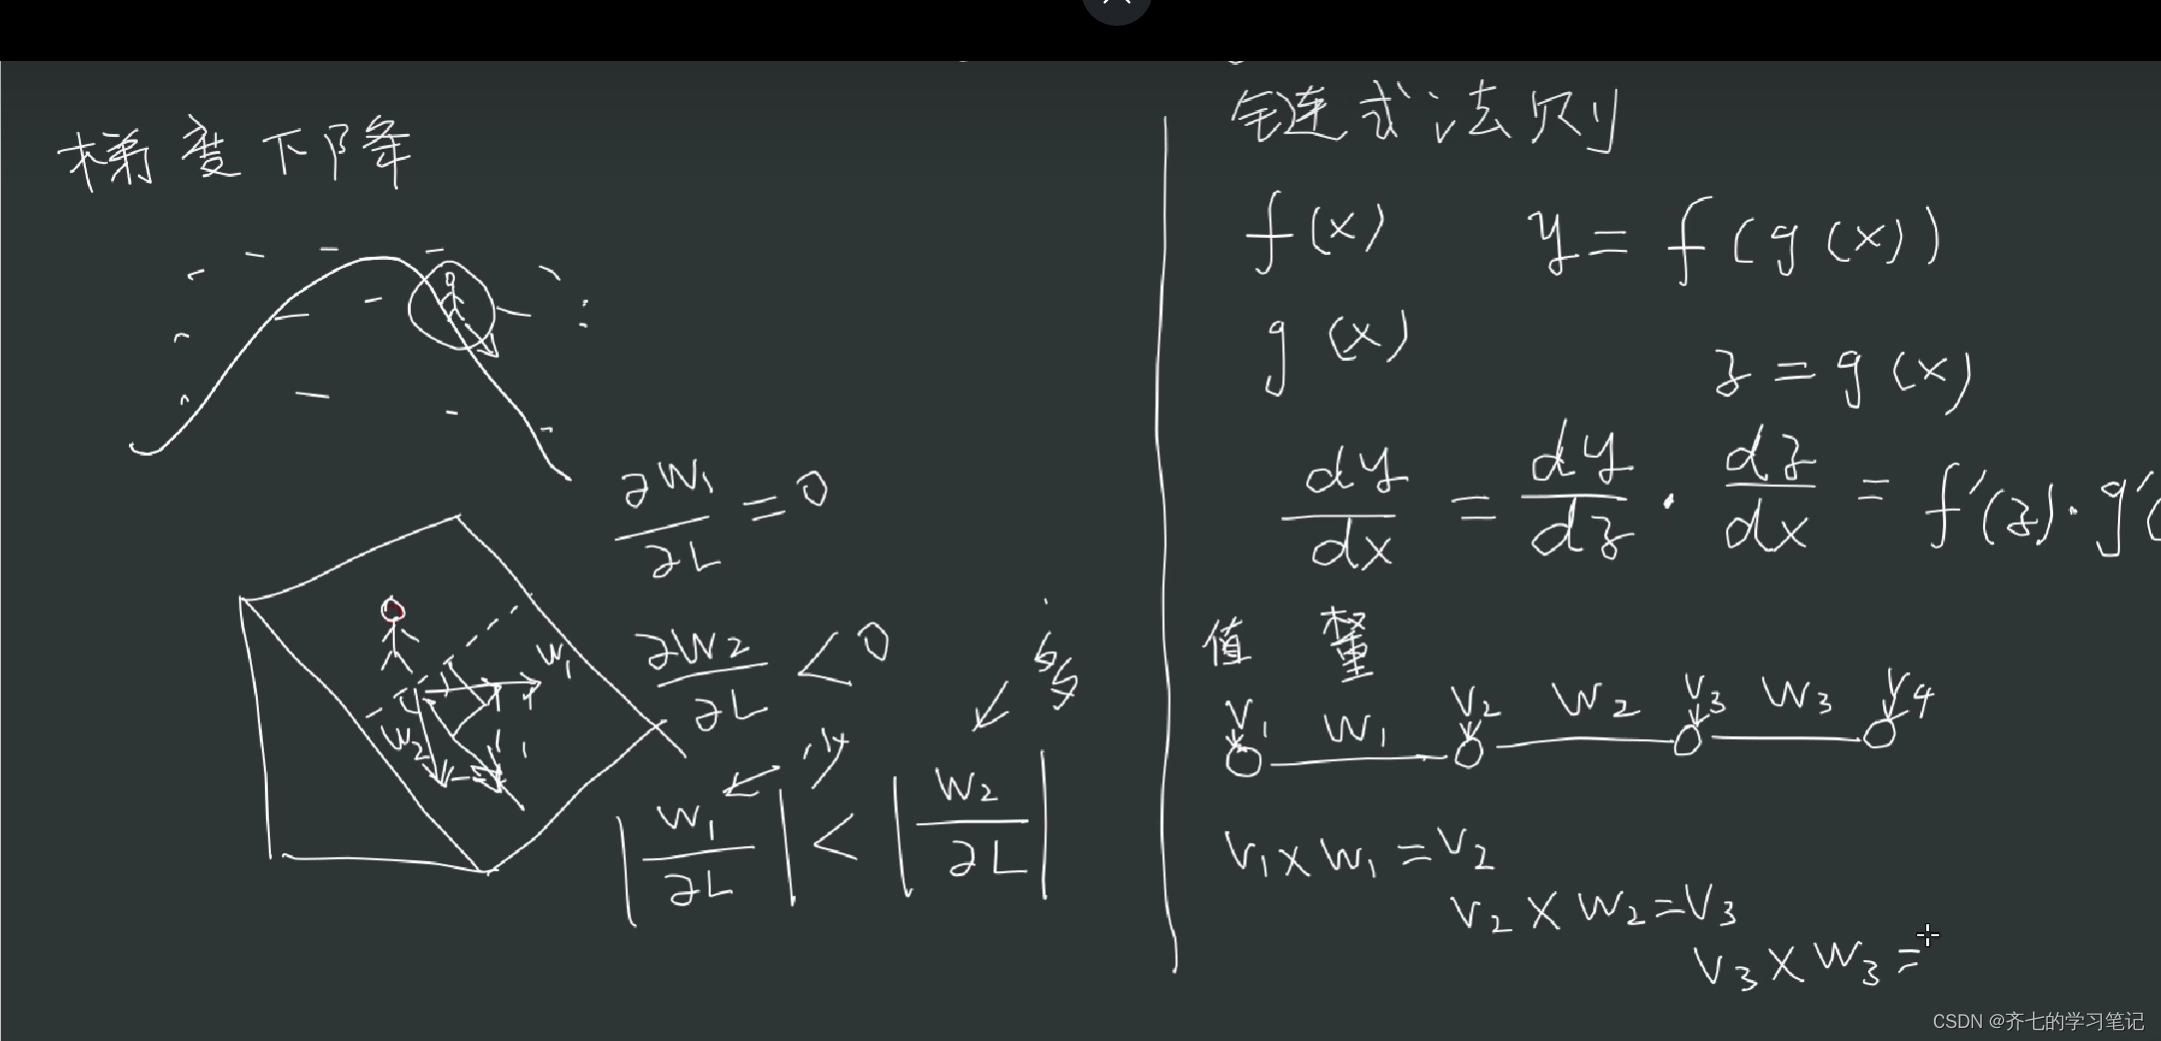 梯度下降
∂W₁/∂L = 0
W₁
W₂
1
1
∂W₂/∂L < 0
少
多
|W₁/∂L| < |W₂/∂L|
链式法则
f(x) y = f(g(x))
g(x)
z = g(x)
dy/dx = dy/dz · dz/dx = f'(z)·g'(
值 权重
V₁ W₁ V₂ W₂ V₃ W₃ V₄
V₁ × W₁ = V₂
V₂ × W₂ = V₃
V₃ × W₃ =
CSDN @齐七的学习笔记